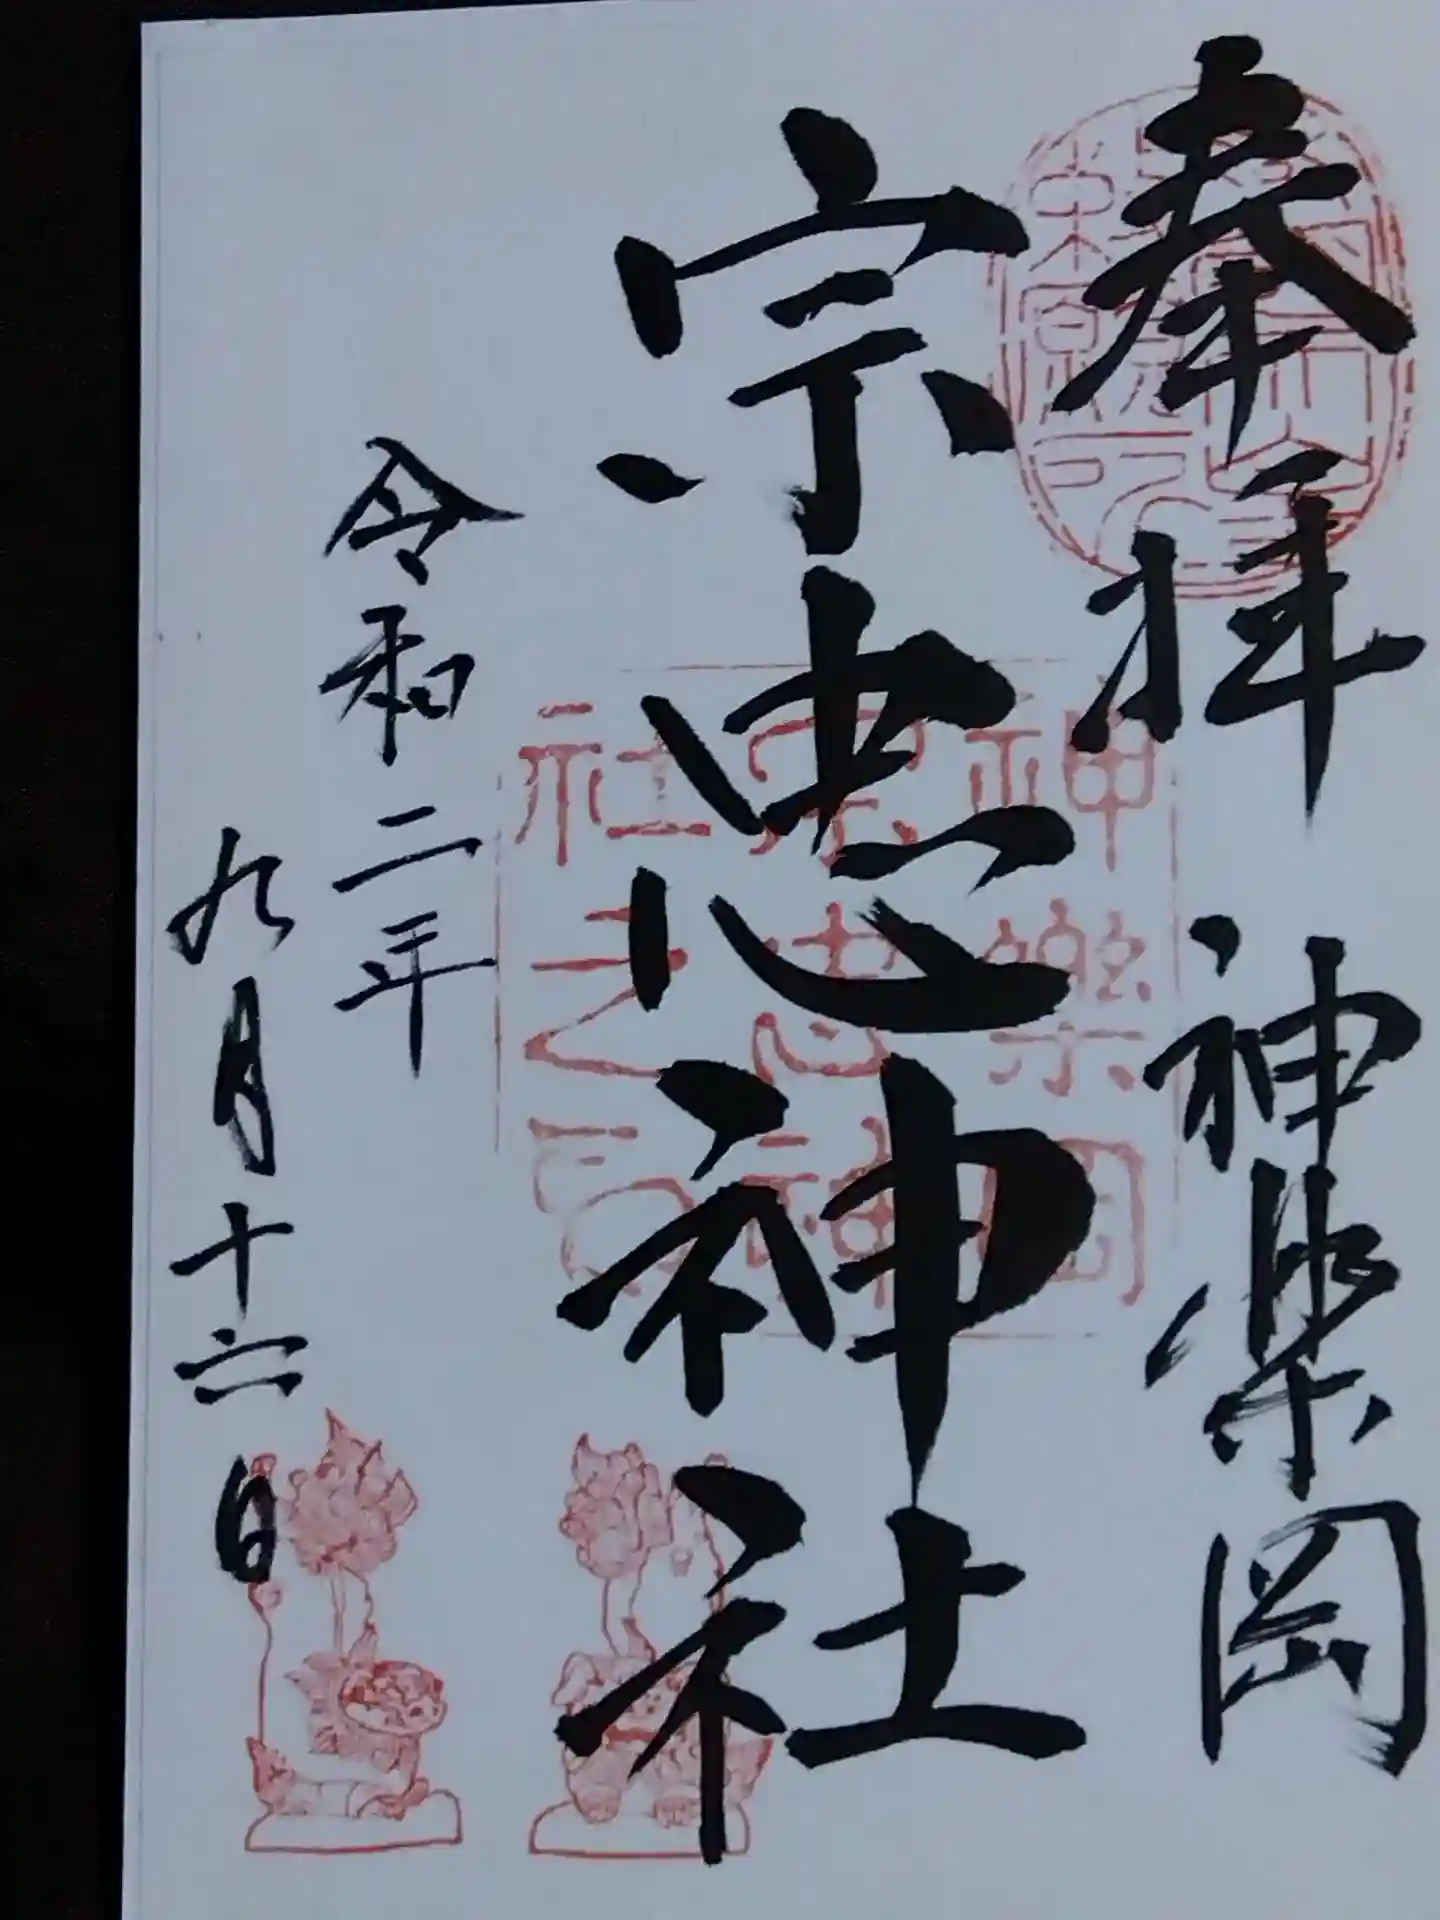 奉拝 神楽岡
宗忠神社
令和二年
九月十六日
神樂岡
宗忠神
社之印